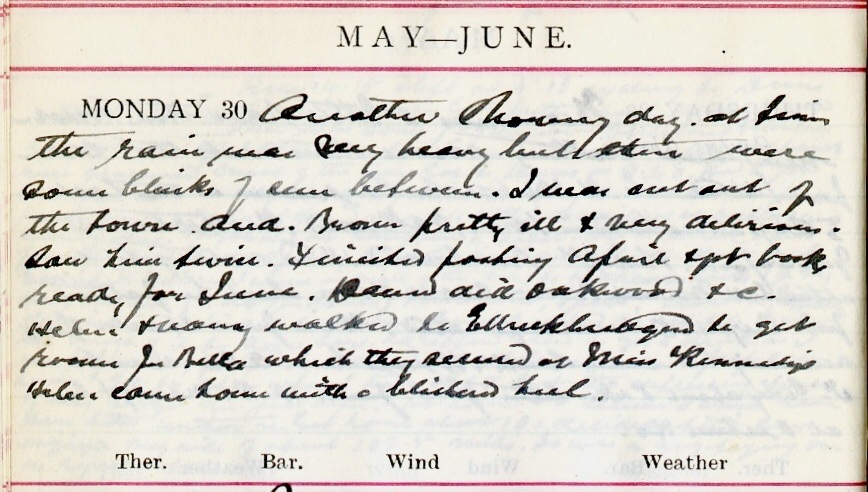 MAY—JUNE.
MONDAY 30 Another Showery day. at times
the rain was very heavy but there were
some blinks of sun between. I was not out of
the town. And. Brown pretty ill & very delirious.
Saw him twice. Finished posting April & got books
ready for June. did Oakwood &c.
Helen & walked to Ettrickbridgend to get
rooms for Bella which they secured at Miss Kennedys
Helen came home with a blistered heel.
Ther. Bar. Wind Weather